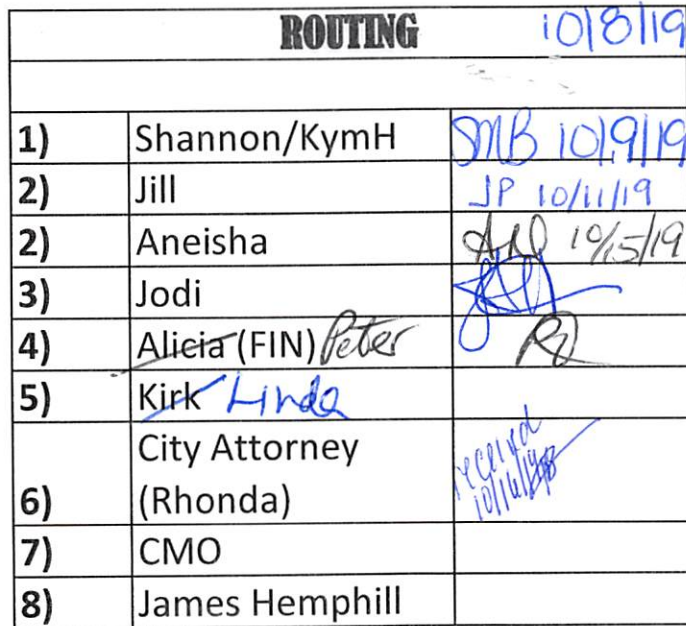 ROUTING 10/8/19
1) Shannon/KymH SMB 10/9/19
2) Jill JP 10/11/19
2) Aneisha 10/15/19
3) Jodi
4) Alicia (FIN) Peter
5) Kirk Linda
City Attorney
6) (Rhonda) received 10/16/19
7) CMO
8) James Hemphill